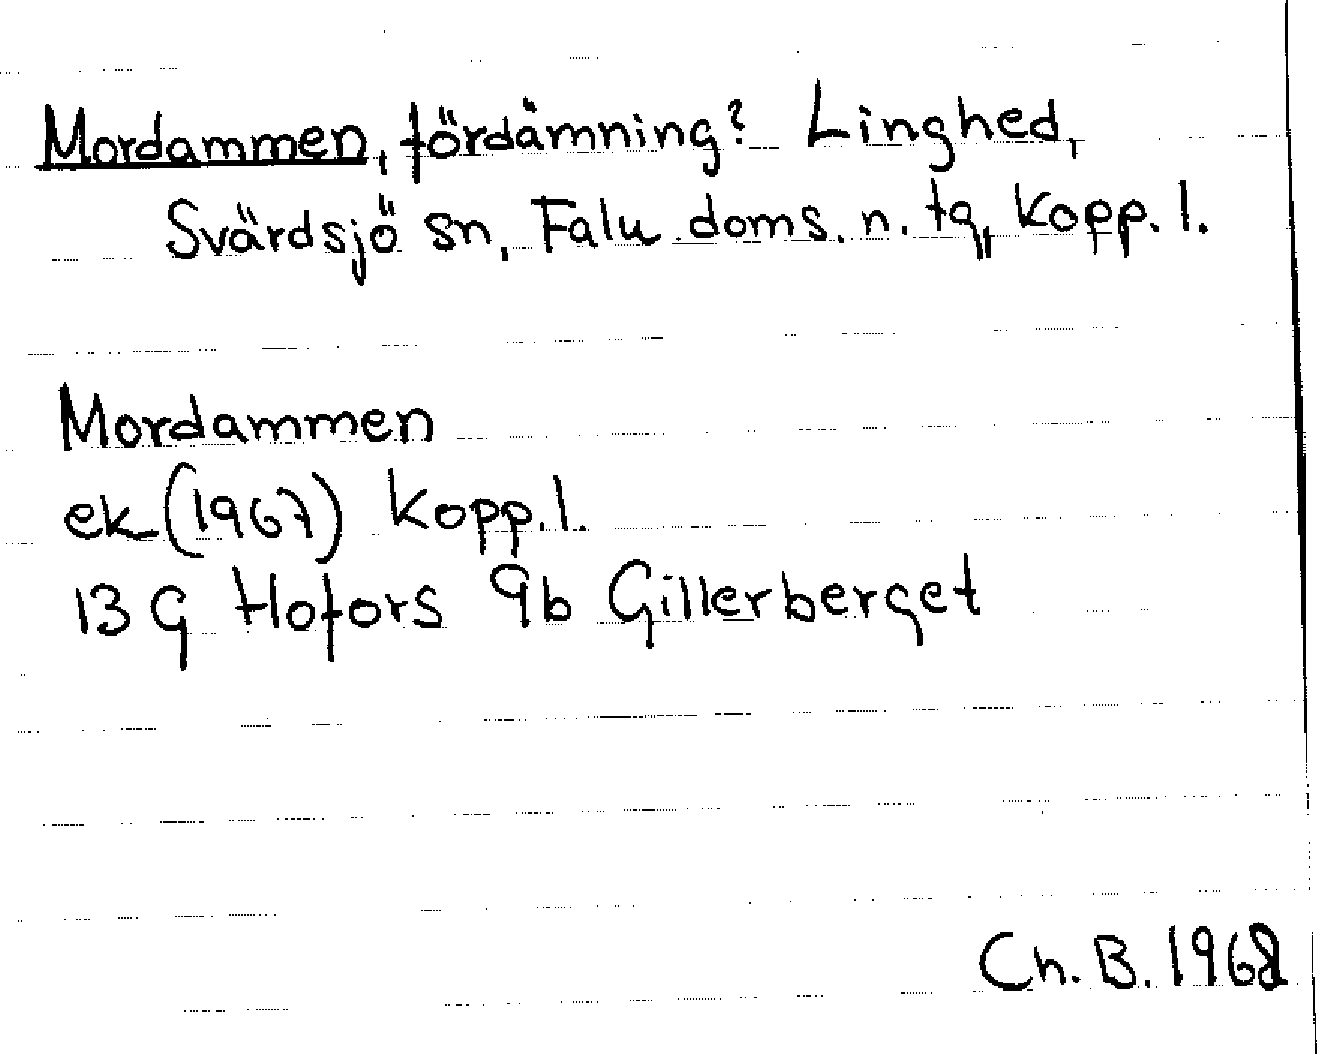 Mordammen, fördämning? Linghed,
Svärdsjö sn, Falu doms. n. tg, Kopp. l.
Mordammen
ek (1967) Kopp. l.
13 G Hofors 9b Gillerberget
Ch. B. 1968